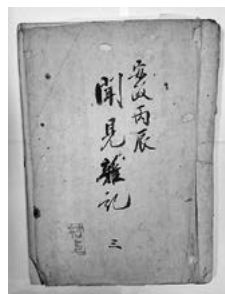 安政丙辰
聞見雜記
三